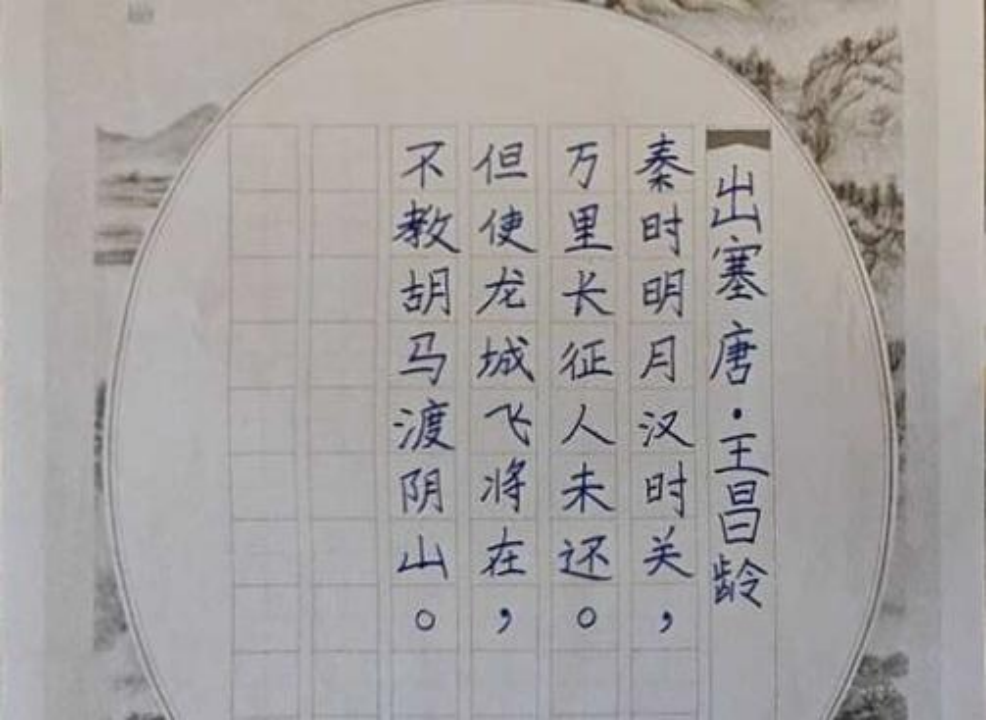 出塞唐·王昌龄
秦时明月汉时关，
万里长征人未还。
但使龙城飞将在，
不教胡马渡阴山。